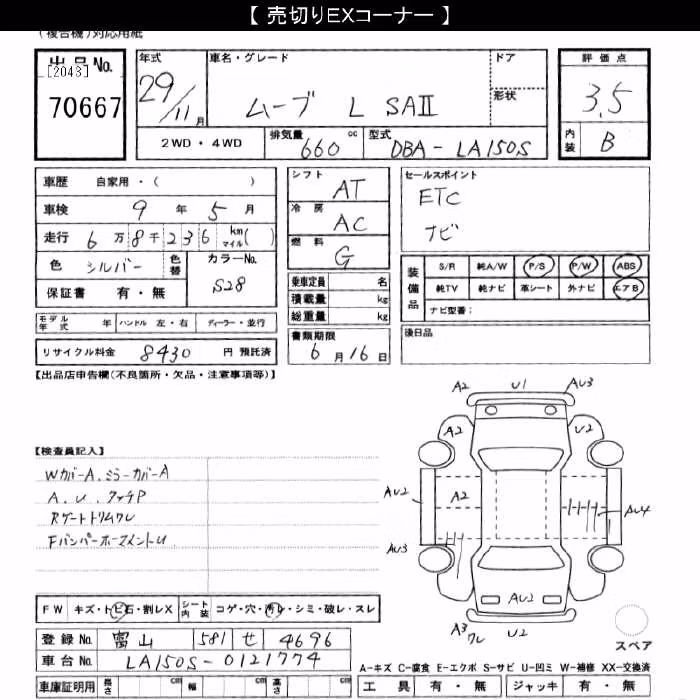 【 売切りEXコーナー 】
(複合機)対応用紙
出品No.
[2043]
70667
年式
29/11月
車名・グレード
ムーブ L SAⅡ
ドア
形状
2WD・4WD
排気量
660 cc
型式
DBA-LA150S
評価点
3.5
内装
B
車歴 自家用・( )
車検 9年 5月
走行 6万8千236 km マイル( )
色 シルバー
色替
カラーNo.
S28
保証書 有・無
シフト
AT
冷房
AC
燃料
G
乗車定員 名
積載量 kg
総重量 kg
セールスポイント
ETC
ナビ
装備品
S/R 純A/W P/S P/W ABS
純TV 純ナビ 革シート 外ナビ エアB
ナビ型番:
モデル年式 年 ハンドル 左・右 ディーラー・並行
リサイクル料金 8430 円 預託済
書類期限
6月16日
後日品
【出品店申告欄(不良箇所・欠品・注意事項等)】
A2 U1 AU3
A2 U2
AU2 A2 AU4
AU3
AU2
A3 ワレ U2
スペア
【検査員記入】
Wカバー A、ミラーカバーA
A、U、タッチP
Rゲートトリムワレ
FバンパーホースメントU
FW キズ・トビ石・割レX
シート内装 コゲ・穴・汚レ・シミ・破レ・スレ
登録No. 富山 581 せ 4696
車台No. LA150S-0121774
車庫証明用 長さ cm 幅 cm 高さ cm
A-キズ C-腐食 E-エクボ S-サビ U-凹ミ W-補修 XX-交換済
工具 有・無 ジャッキ 有・無